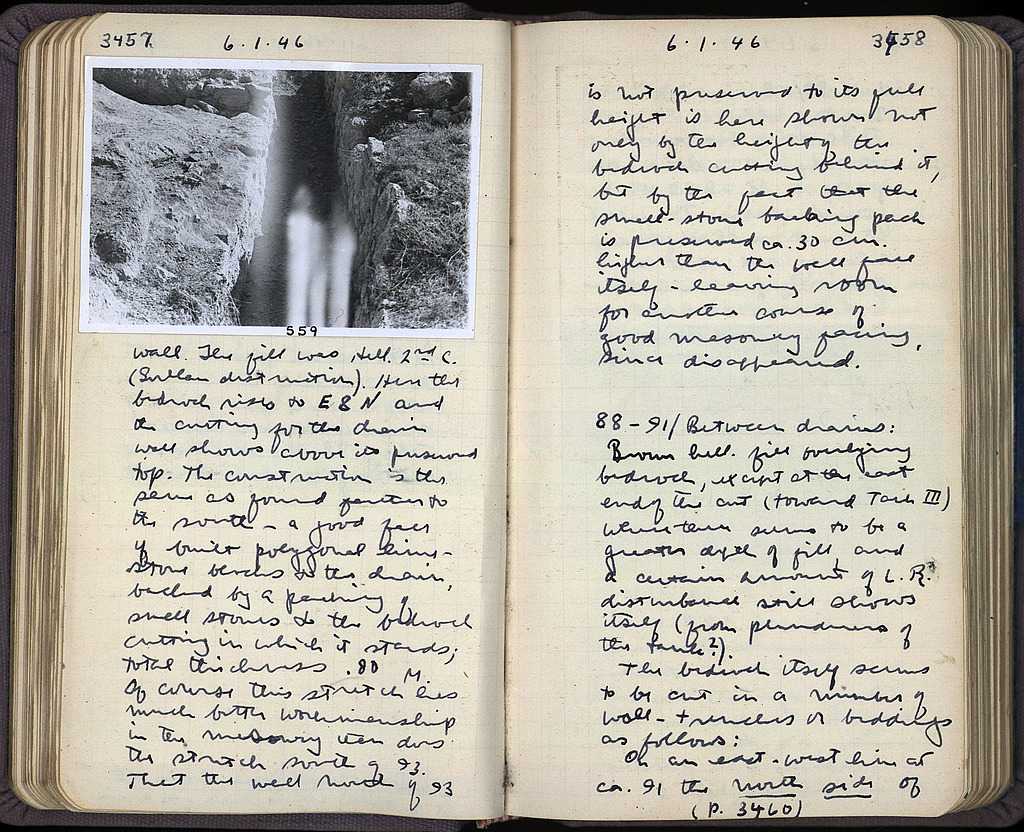 3457 6.1.46
559
wall. The fill was Hell. 2nd C.
(Sullan destruction). Here the
bedrock rises to E & N and
the cutting for the drain
wall shows above its preserved
top. The construction is the
same as found farther to
the south – a good face
of built polygonal lime-
stone blocks to the drain,
backed by a packing of
small stones to the bedrock
cutting in which it stands;
total thickness .80 M.
Of course this stretch has
much better workmanship
in the masonry than does
the stretch south of 93.
That the wall north of 93
6.1.46 3458
is not preserved to its full
height is here shown not
only by the height of the
bedrock cutting behind it,
but by the fact that the
small-stone backing pack
is preserved ca. 30 cm.
higher than the wall face
itself – leaving room
for another course of
good masonry facing,
since disappeared.
88–91/ Between drains:
Brown hell. fill overlying
bedrock, except at the east
end of the cut (toward Tank III)
where there seems to be a
greater depth of fill, and
a certain amount of L.R.
disturbance still shows
itself (from plunderers of
the tank?).
The bedrock itself seems
to be cut in a number of
wall-trenches or beddings
as follows:
On an east-west line at
ca. 91 the north side of
(p. 3460)